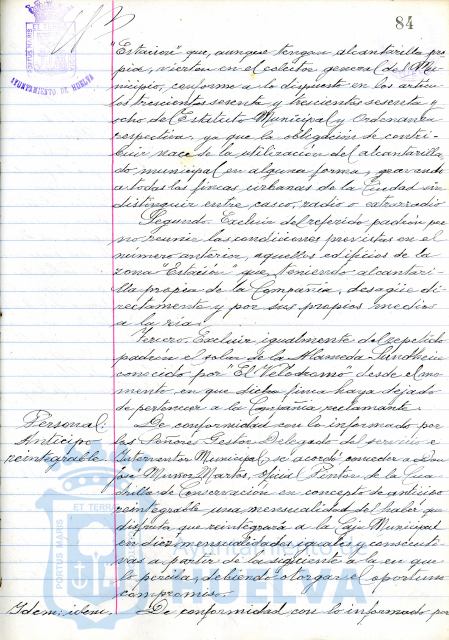 84
AYUNTAMIENTO DE HUELVA
"Estación" que, aunque tengan alcantarilla pro-
pia, viertan en el colector general del Mu-
nicipio, conforme a lo dispuesto en los artícu-
los trescientos sesenta y trescientos sesenta y
ocho del Estatuto Municipal y Ordenanza
respectiva, ya que la obligación de contri-
buir nace de la utilización del alcantarilla-
do municipal en alguna forma, gravando
a todas las fincas urbanas de la Ciudad sin
distinguir entre casco, radio o extrarradio
Segundo. Excluir del referido padrón por
no reunir las condiciones previstas en el
número anterior, aquellos edificios de la
zona "Estación" que, teniendo alcantari-
lla propia de la Compañía, desagüe di-
rectamente y por sus propios medios
a la ría.
Tercero. Excluir igualmente del repetido
padrón el solar de la Alameda Sundheim
conocido por "El Velódromo" desde el mo-
mento en que dicha finca haya dejado
de pertenecer a la Compañía reclamante.
Personal:
Anticipo
reintegrable
De conformidad con lo informado por
los Señores Gestor Delegado del servicio e
Interventor Municipal se acordó conceder a Don
José Muñoz Martos, Oficial Pintor de la Cua-
drilla de Conservación en concepto de anticipo
reintegrable una mensualidad del haber que
disfruta que reintegrará a la Caja Municipal
en diez mensualidades iguales y consecuti-
vas a partir de la siguiente a la en que
lo perciba, debiendo otorgar el oportuno
compromiso.
Idem: idem.
De conformidad con lo informado por
PORTUS MARIS ET TERRAE
Ayuntamiento de
HUELVA